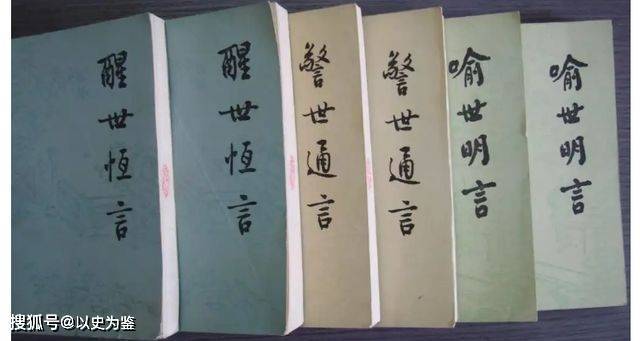 醒世恆言
醒世恆言
警世通言
警世通言
喻世明言
喻世明言
搜狐号@以史为鉴